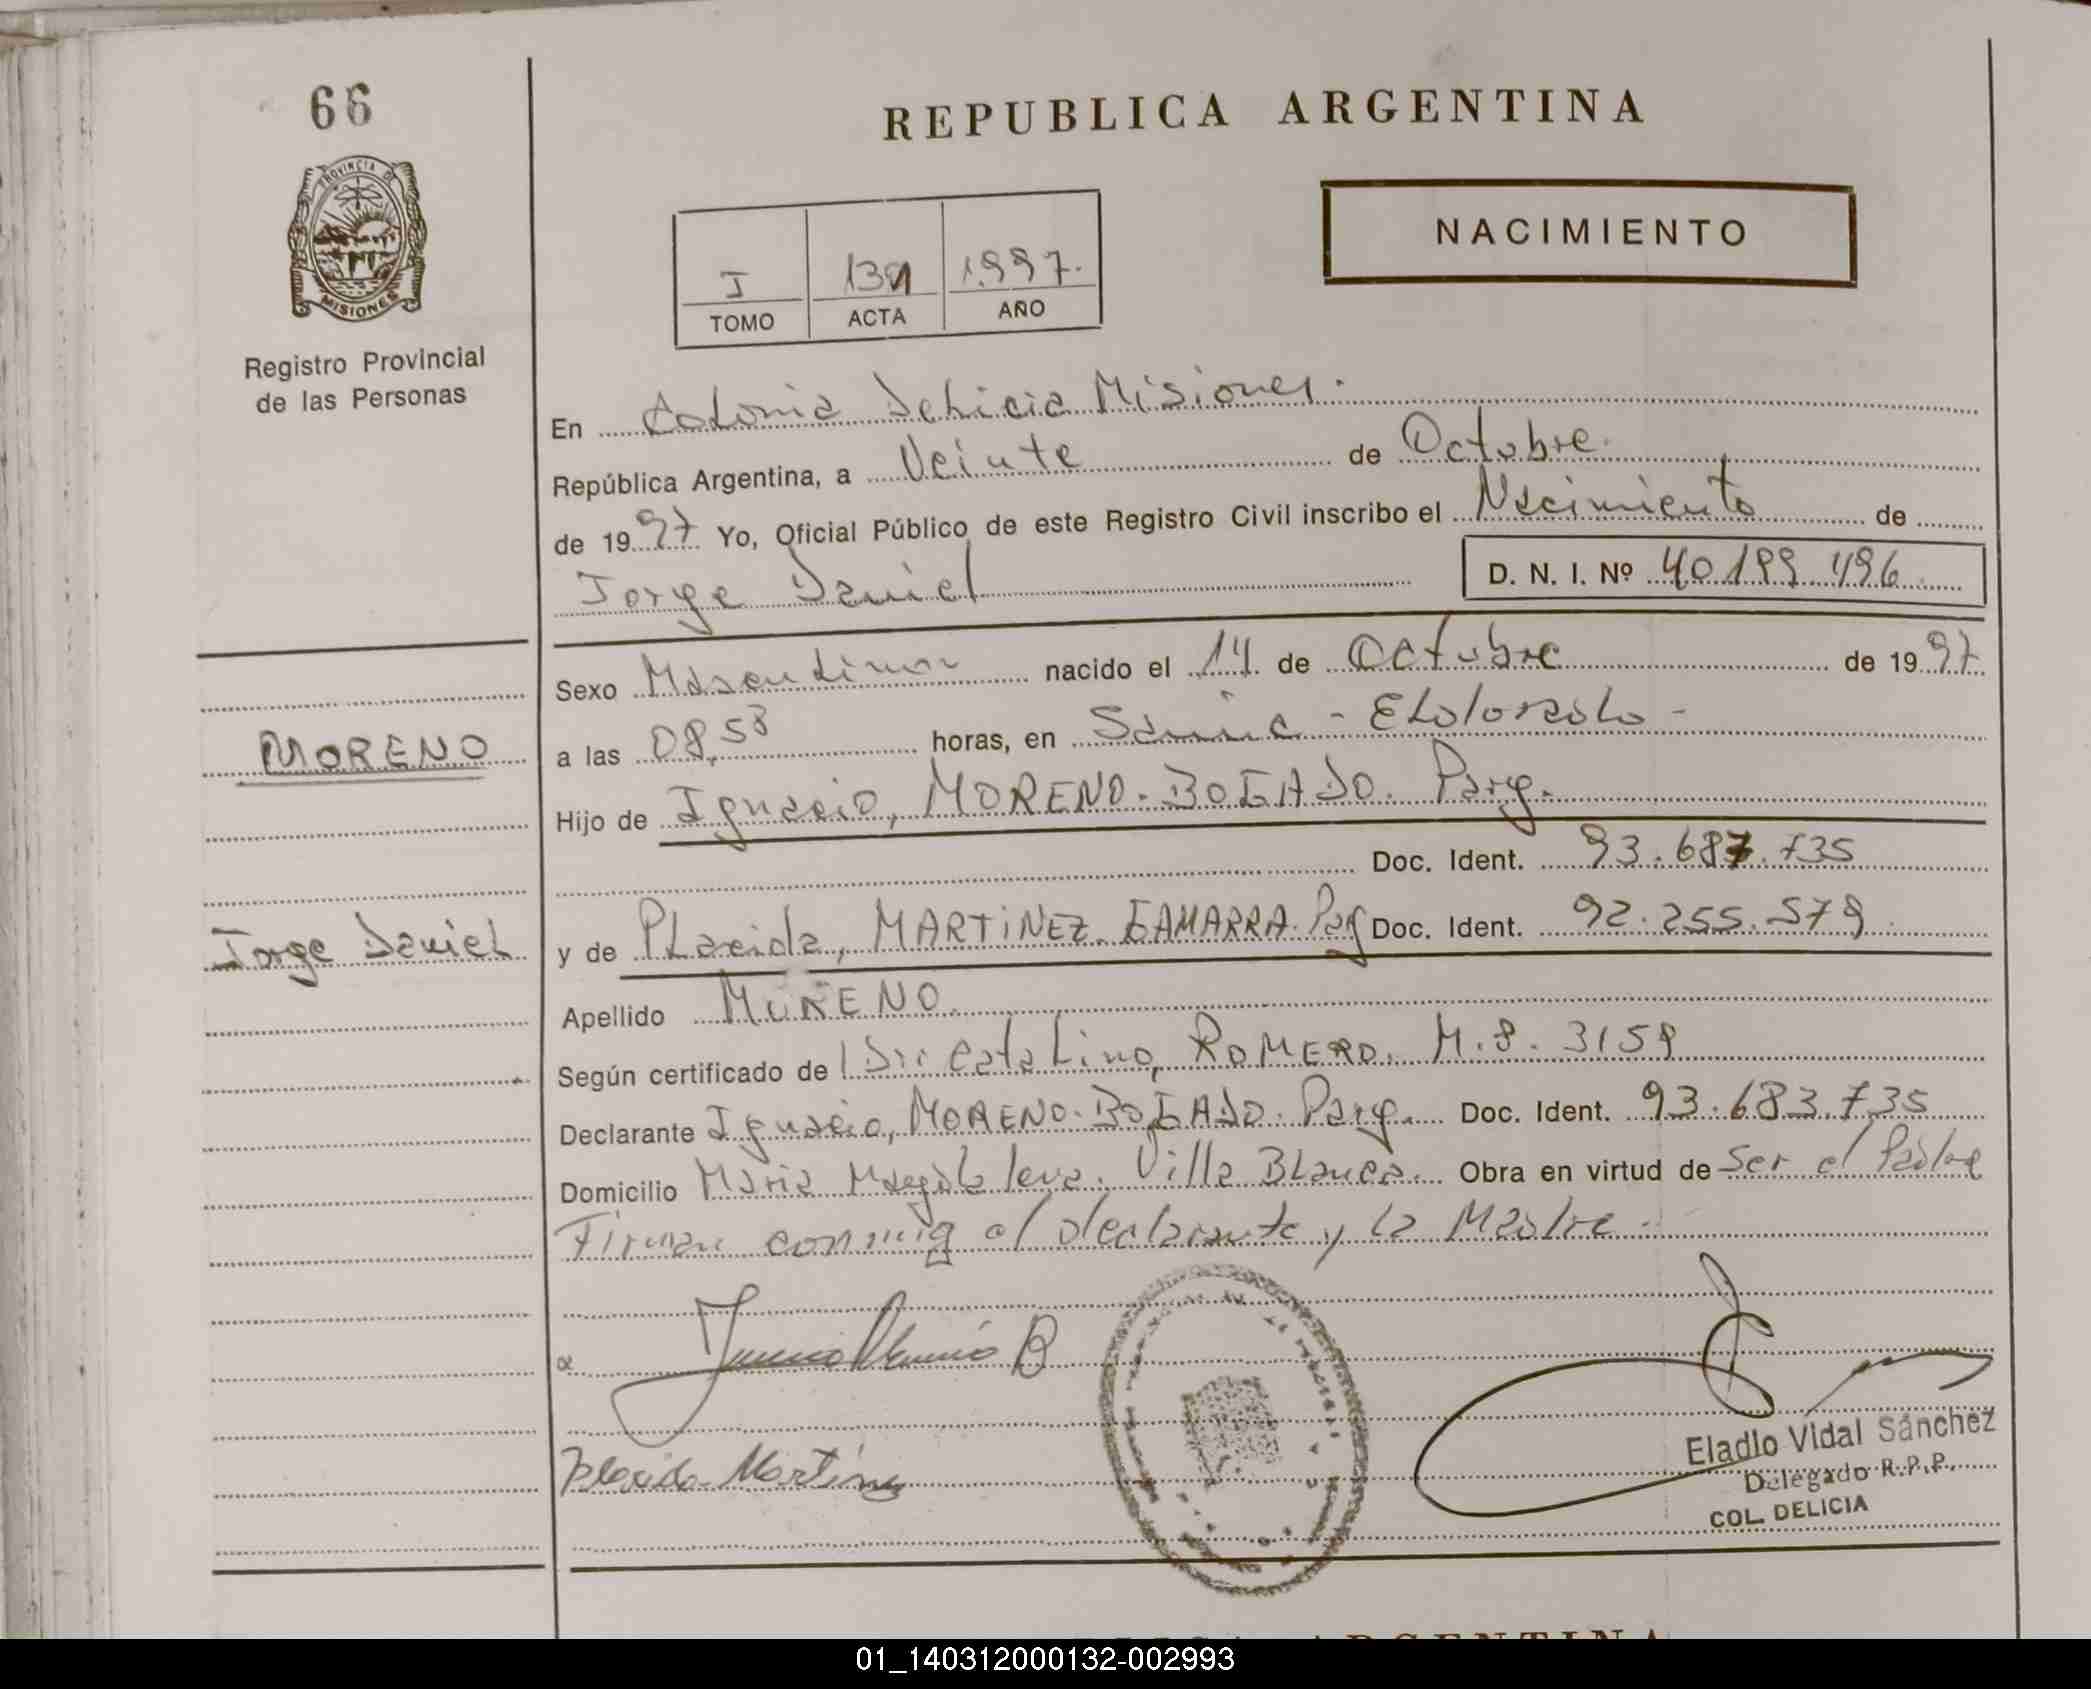 66
REPUBLICA ARGENTINA
NACIMIENTO
PROVINCIA DE
MISIONES
Registro Provincial
de las Personas
I 131 1.997.
TOMO ACTA AÑO
En Colonia Delicia Misiones.
República Argentina, a Veinte de Octubre.
de 1997 Yo, Oficial Público de este Registro Civil inscribo el Nacimiento de
Jorge Daniel D. N. I. Nº 40.199.496
Sexo Masculino nacido el 14 de Octubre de 1997
MORENO
a las 08,53 horas, en - Eldorado -
Hijo de Ignacio, MORENO. BOGADO. Parg.
Doc. Ident. 93.687.735
Jorge Daniel
y de Placida, MARTiNEZ. GAMARRA. Parg Doc. Ident. 92.255.579.
Apellido MORENO.
Según certificado de Dr: Catalino, ROMERO. M.P. 3159
Declarante Ignacio, MORENO. BOGADO. Parg. Doc. Ident. 93.683.735
Domicilio Maria Magdalena. Villa Blanca. Obra en virtud de Ser el Padre
Firman conmigo el declarante y la Madre.
B
Placida Martinez
Eladio Vidal Sánchez
Delegado R.P.P.
COL. DELICIA
ARGENTINA
01_140312000132-002993